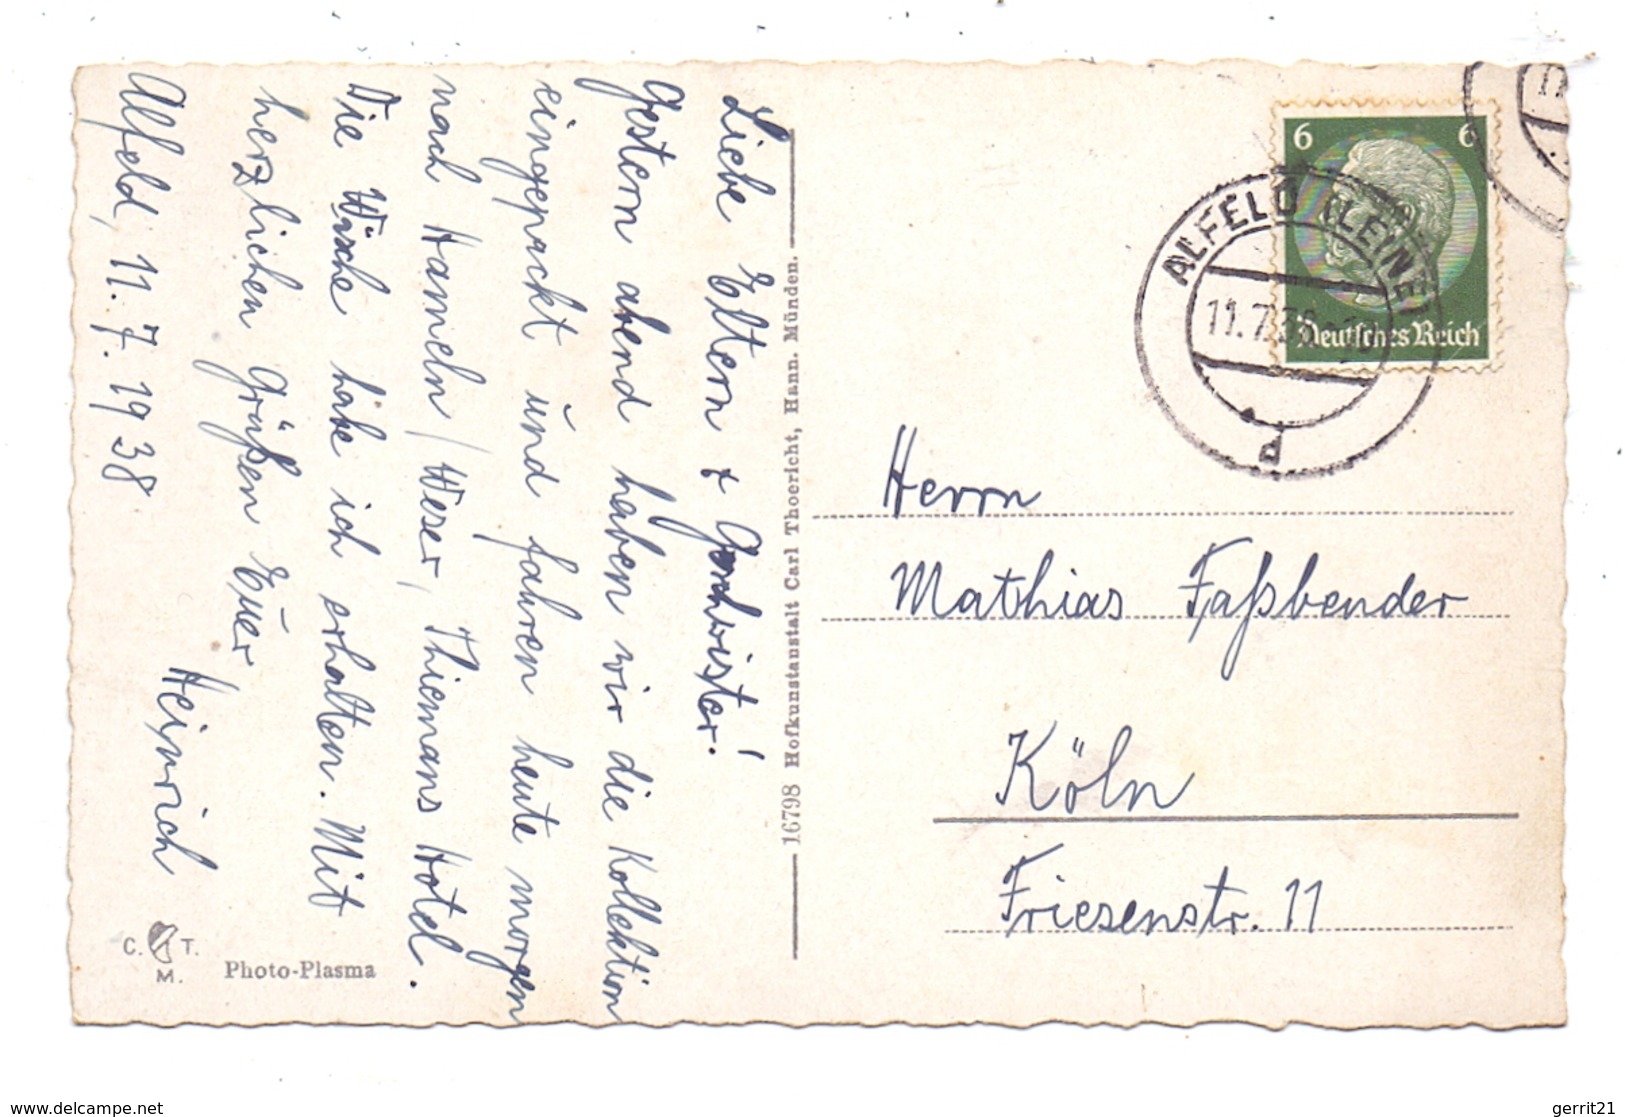 Liebe Eltern + Geschwister!
Gestern abend haben wir die Kollektion
eingepackt und fahren heute morgen
nach Hameln/Weser, Thiemans Hotel.
Die Wäsche habe ich erhalten. Mit
herzlichen Grüßen Euer
Heinrich
Alfeld, 11. 7. 1938
C. T.
M.
Photo-Plasma
16798 Hofkunstanstalt Carl Thoericht, Hann. Münden.
6 6
Deutsches Reich
ALFELD (LEINE)
11.7.38
d
Herrn
Mathias Faßbender
Köln
Friesenstr. 11
www.delcampe.net
gerrit21